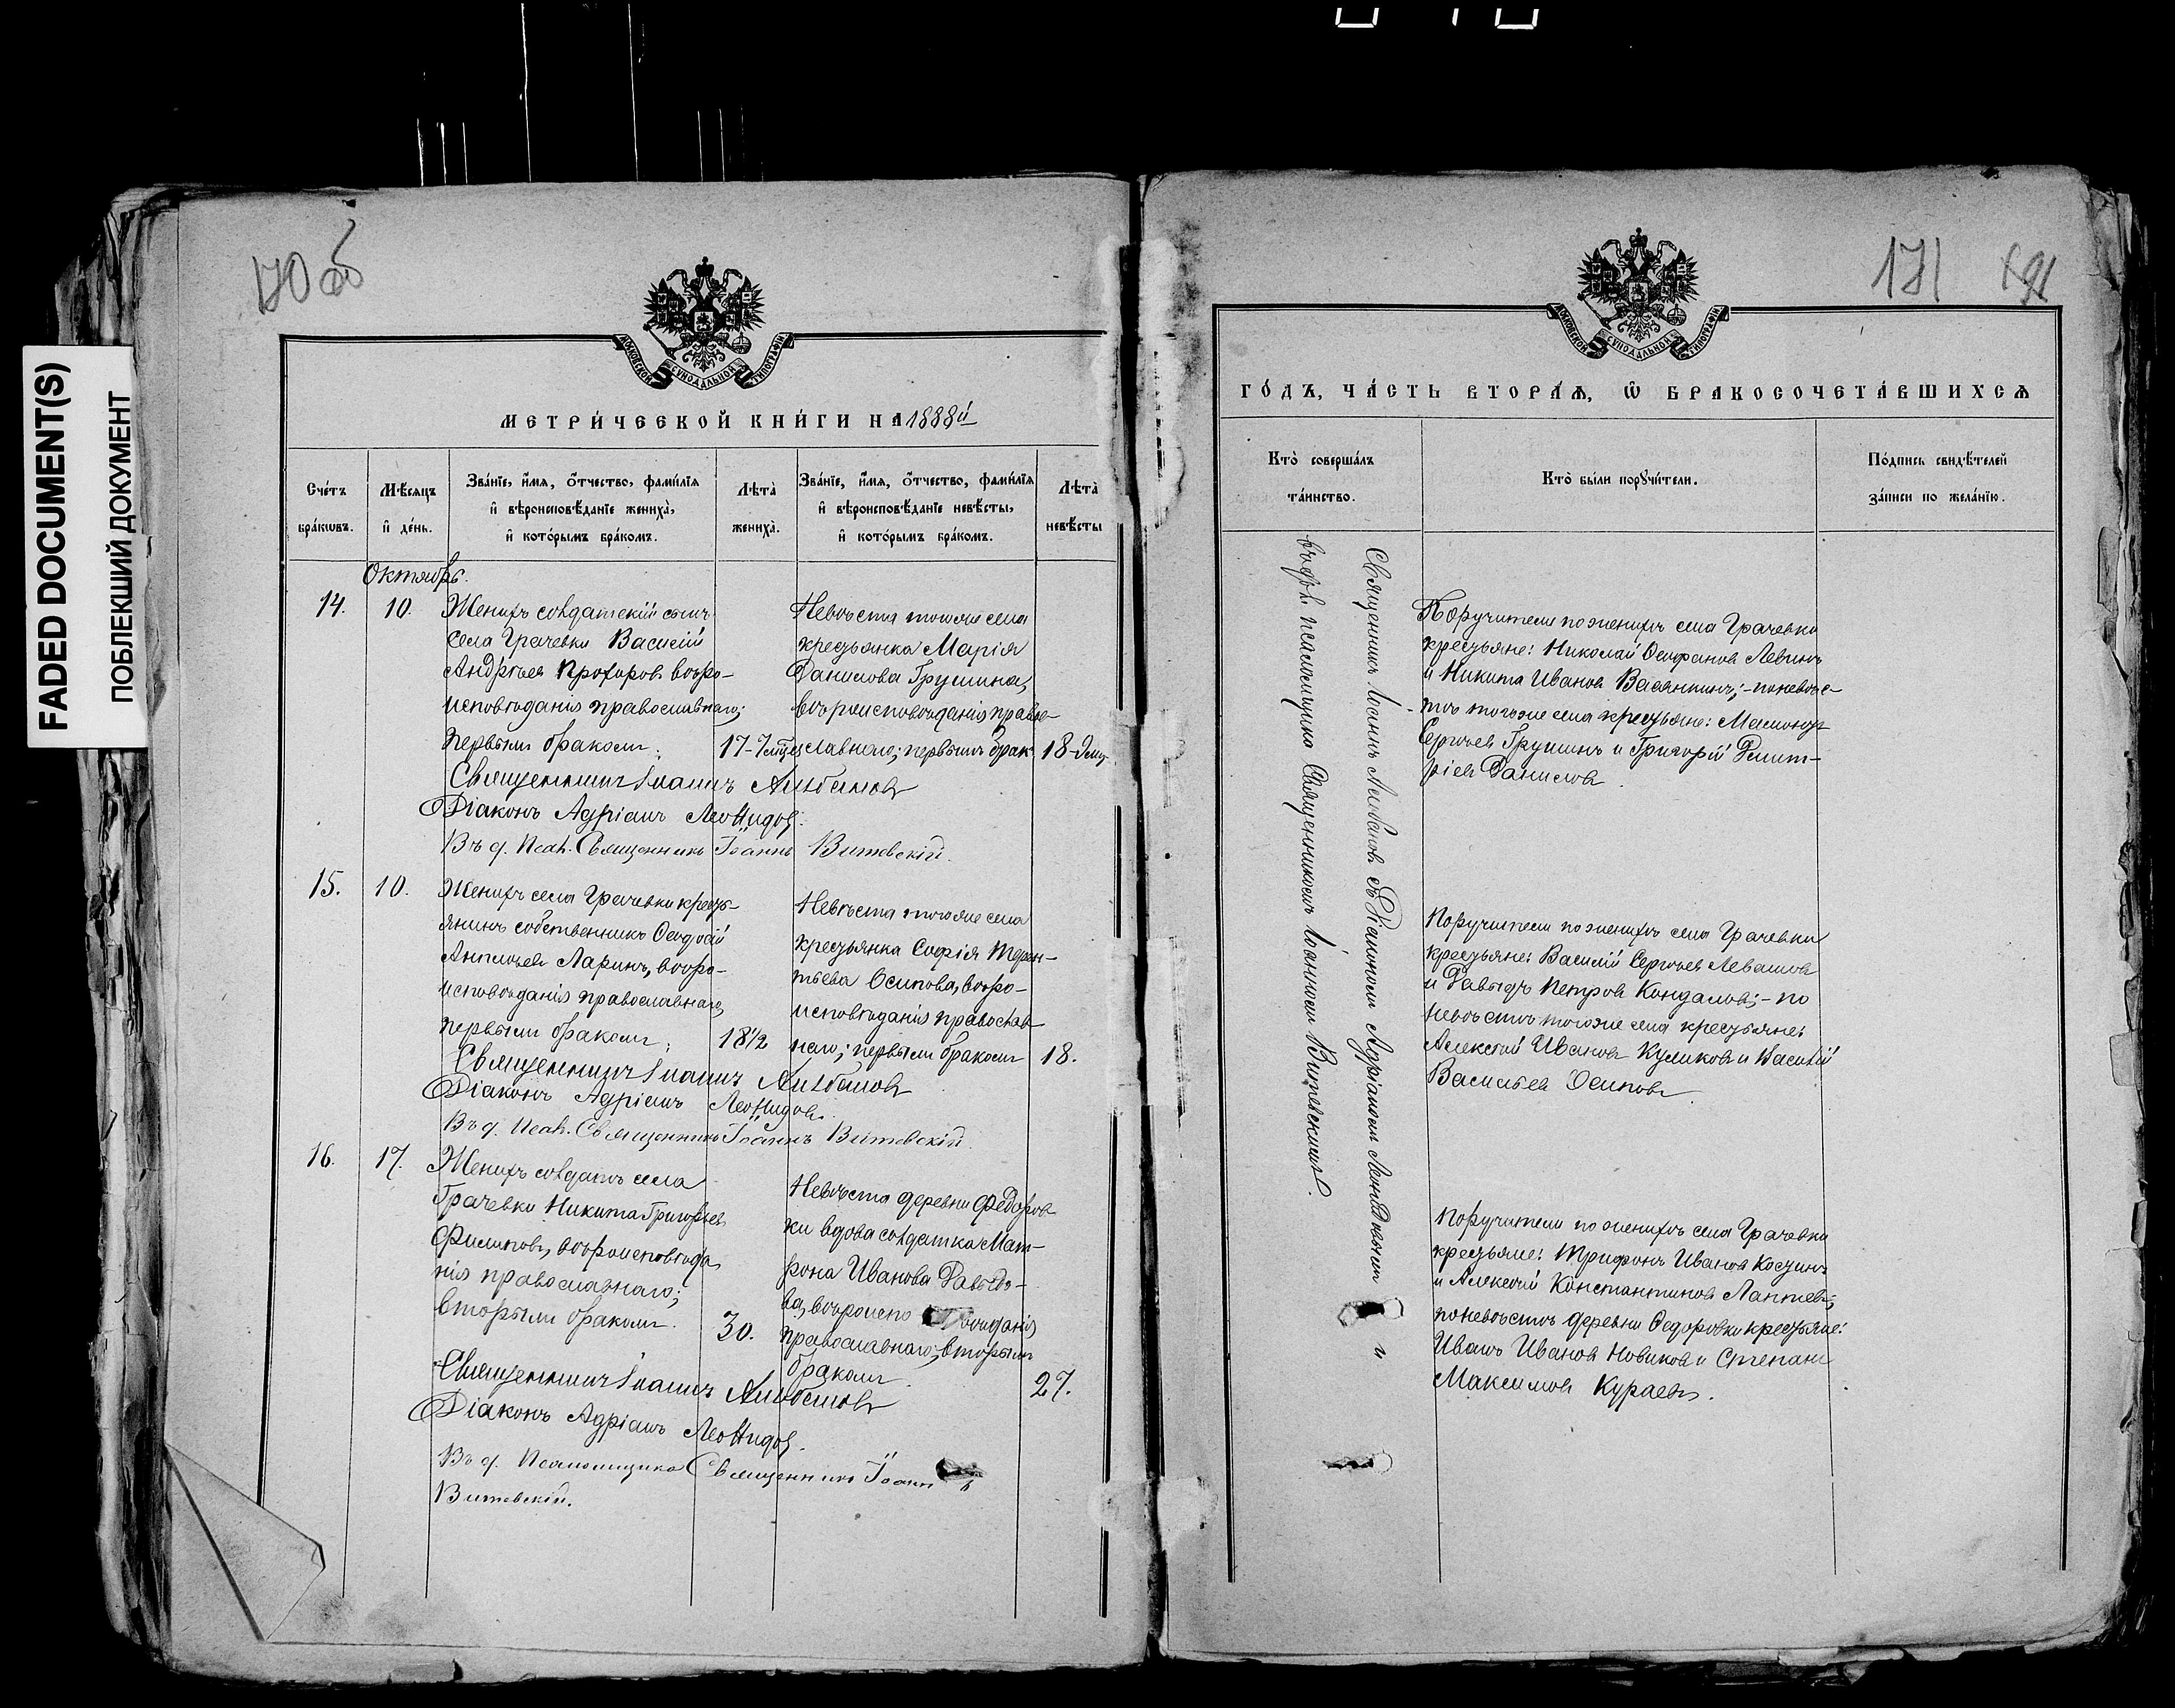 FADED DOCUMENT(S)
ПОБЛЕКШИЙ ДОКУМЕНТ
170 об
МОСКОВСКОЙ СУНОДАЛЬНОЙ ТИПОГРАФІИ
МЕТРИ́ЧЕСКОЙ КНИ́ГИ НА 1888й
Сче́тъ бра́кωвъ.
Мѣ́сяцъ и҆ де́нь.
Зва́нїе, и҆́мя, ѻ҆́тчество, фами́лїя и҆ вѣроисповѣ́данїе жениха̀, и҆ кото́рымъ бра́комъ.
Лѣ́та жениха̀.
Зва́нїе, и҆́мя, ѻ҆́тчество, фами́лїя и҆ вѣроисповѣ́данїе невѣ́сты, и҆ кото́рымъ бра́комъ.
Лѣ́та невѣ́сты
Октябрь.
14.
10.
Женихъ солдатскій сынъ
села Грачевки Василій
Андреевъ Прохоровъ вѣро-
исповѣданія православнаго;
первымъ бракомъ.
17-
Невѣста тогоже села
крестьянка Марія
Данилова Грушина,
вѣроисповѣданія право-
славнаго; первымъ брак.
18-
Священникъ Іоаннъ Алибановъ
Діаконъ Адріанъ Леонидовъ.
Въ д. Псал. Священникъ Іоаннъ Витевскій.
15.
10.
Женихъ села Грачевки кресть-
янинъ собственникъ Ѳеодосій
Ларинъ, вѣро-
исповѣданія православнаго,
первымъ бракомъ;
18 1/2
Невѣста тогоже села
крестьянка Софія Терен-
тьева Осипова, вѣро-
исповѣданія православ-
наго; первымъ бракомъ
18.
Священникъ Іоаннъ Алибановъ
Діаконъ Адріанъ Леонидовъ.
Въ д. Псал. Священникъ Іоаннъ Витевскій.
16.
17.
Женихъ солдатъ села
Грачевки Никита Григорьев
Филиповъ, вѣроисповѣда
нія православнаго;
вторымъ бракомъ.
30.
Невѣста деревни Федоров
ки вдова солдатка Мат-
рона Иванова Давыдо-
ва, вѣроиспо вѣданія
православнаго; вторымъ
бракомъ.
27.
Священникъ Іоаннъ Алибановъ
Діаконъ Адріанъ Леонидовъ.
Въ д. Псаломщика Священникъ Іоаннъ
Витевскій.
171
МОСКОВСКОЙ СУНОДАЛЬНОЙ ТИПОГРАФІИ
ГО́ДЪ, ЧА́СТЬ ВТОРА́Я, Ѡ БРАКОСОЧЕТА́ВШИХСЯ
Кто̀ соверша́лъ та́инство.
Кто̀ бы́ли порꙋчи́тели.
По́дпись свидѣ́телей за́писи по жела́нїю.
Священникъ Іоаннъ Алибановъ съ Діакономъ Адріаномъ Леонидовымъ и
въ д. псаломщика Священникомъ Іоанномъ Витевскимъ.
Поручители по женихѣ села Грачевки
крестьяне: Николай Ѳеофановъ Левинъ
и Никита Ивановъ Васянкинъ; - по невѣс-
тѣ тогоже села крестьяне:
Сергѣевъ Грушинъ и Григорій Дмит-
ріевъ Даниловъ.
Поручители по женихѣ села Грачевки
крестьяне: Василій Сергѣевъ Левашовъ
и Давыдъ Петровъ Кондаловъ; - по
невѣстѣ тогоже села крестьяне:
Алексѣй Ивановъ Куликовъ и Василій
Васильевъ Осиповъ.
Поручители по женихѣ села Грачевки
крестьяне: Трифонъ Ивановъ Косынъ
и Алексѣй Константиновъ Лаптевъ;
по невѣстѣ деревни Ѳедоровки крестьяне:
Иванъ Ивановъ Новиковъ и Степанъ
Максимовъ Кураевъ.